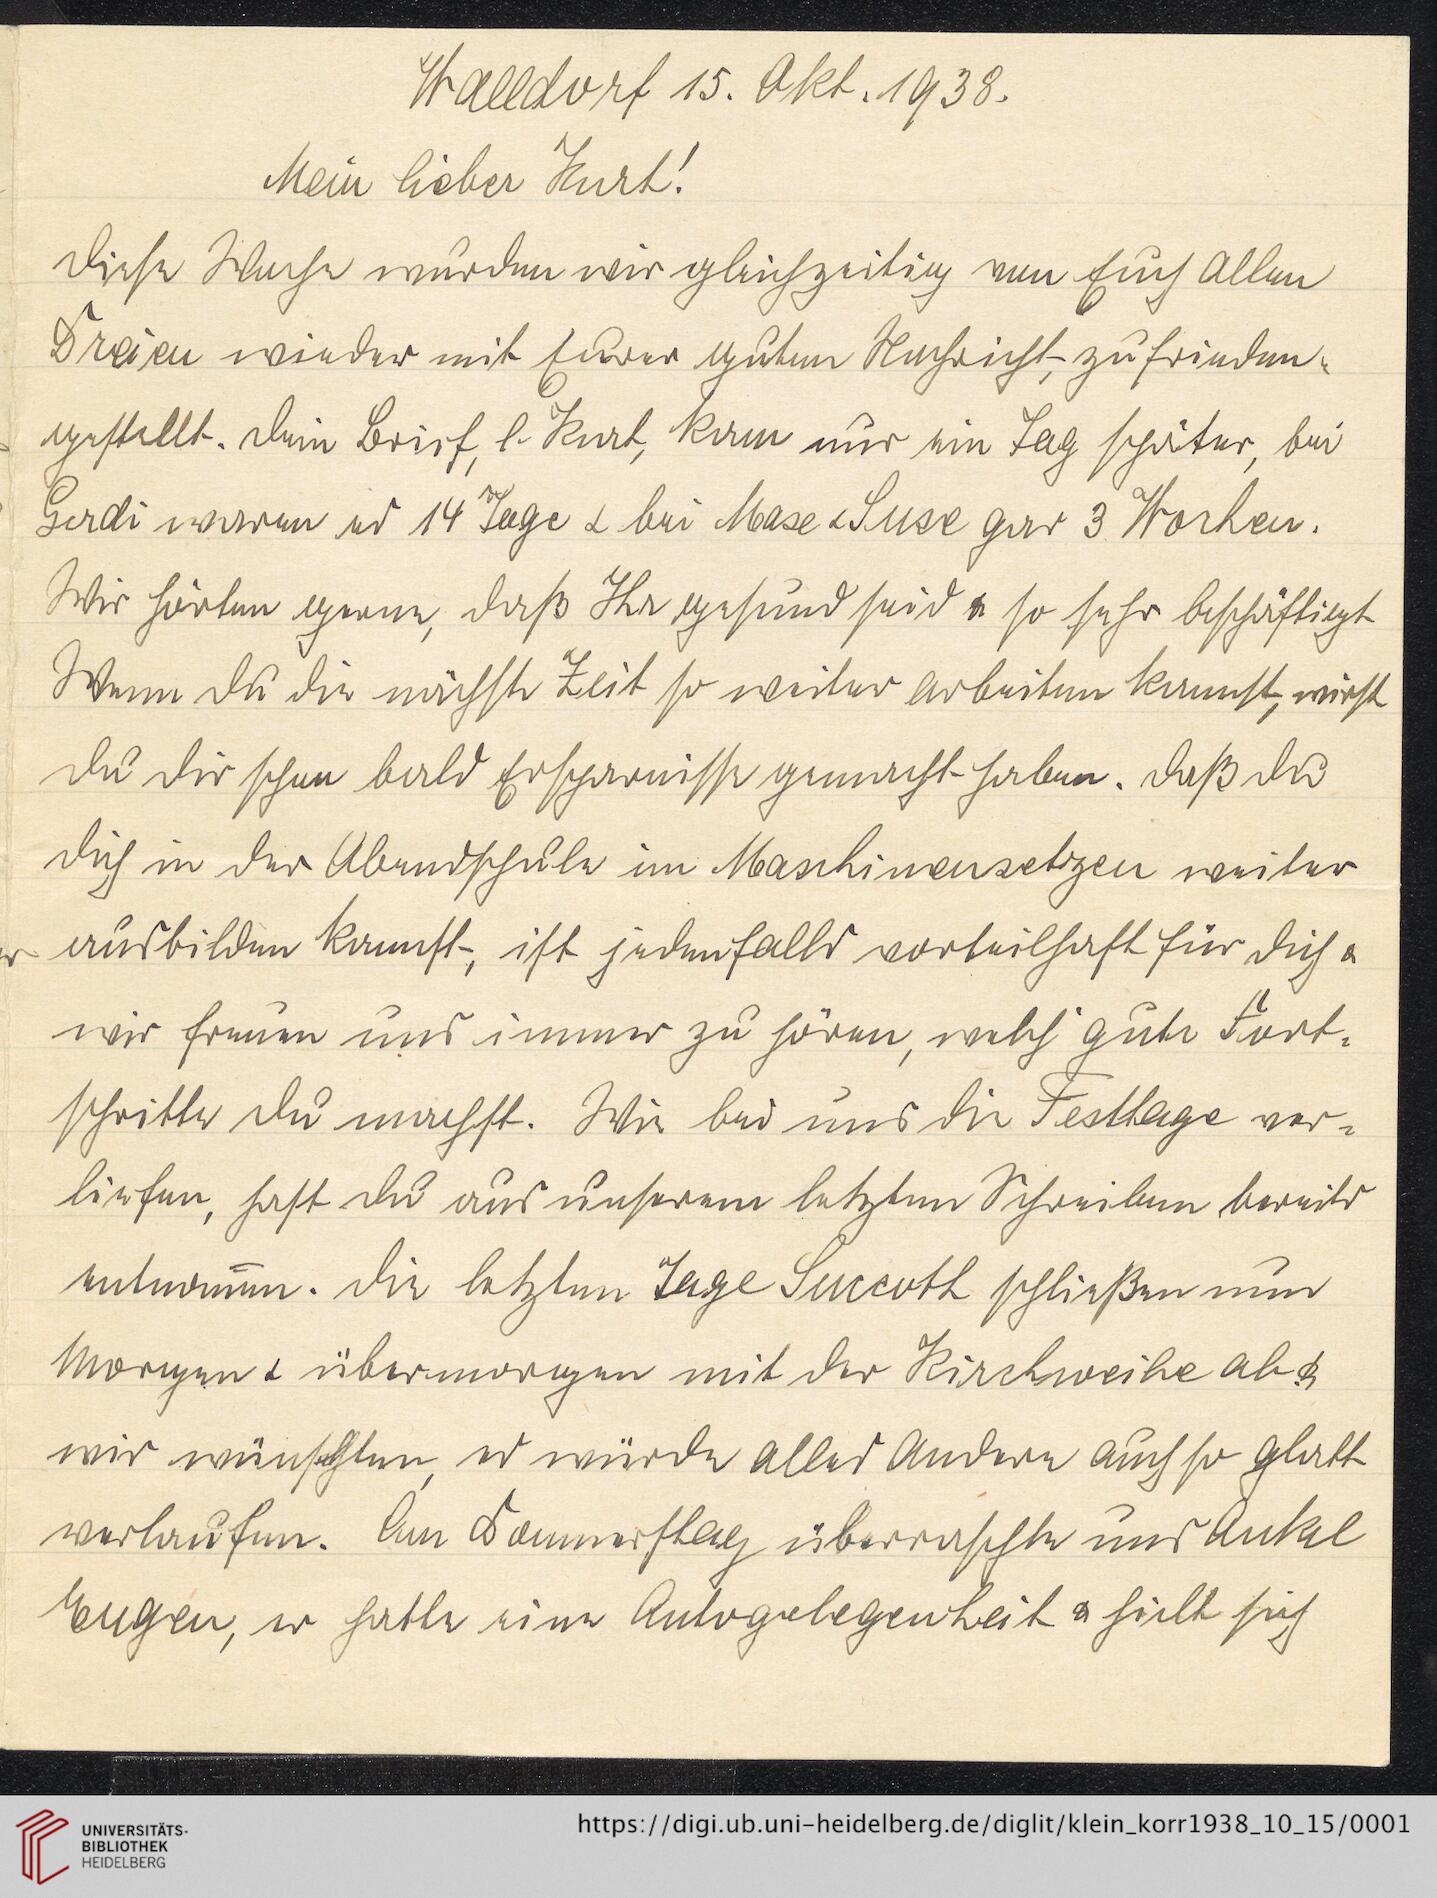 Walldorf 15. Okt. 1938.
Mein lieber Kurt!
Diese Woche wurden wir gleichzeitig von Euch allen
Dreien wieder mit Eurer guten Nachricht, zufrieden-
gestellt. Dein Brief, l. Kurt, kam nur ein Tag später, bei
Gerdi waren es 14 Tage & bei Mase & Suse gar 3 Wochen.
Wir hörten gerne, daß Ihr gesund seid & so sehr beschäftigt
Wenn Du die nächste Zeit so weiter arbeiten kannst, wirst
Du Dir schon bald Ersparnisse gemacht haben. Daß Du
Dich in der Abendschule im Maschinensetzen weiter
ausbilden kannst, ist jedenfalls vorteilhaft für Dich &
wir freuen uns immer zu hören, welch' gute Fort-
schritte Du machst. Wie bei uns die Festtage ver-
liefen, hast Du aus unserem letzten Schreiben bereits
entnom̅en. Die letzten Tage Succoth schließen nun
Morgen & übermorgen mit der Kirchweihe ab &
wir wünschten, es würde alles Andere auch so glatt
verlaufen. Am Donnerstag überraschte uns Onkel
Eugen, er hatte eine Autogelegenheit & hielt sich
UNIVERSITÄTS-
BIBLIOTHEK
HEIDELBERG
https://digi.ub.uni-heidelberg.de/diglit/klein_korr1938_10_15/0001